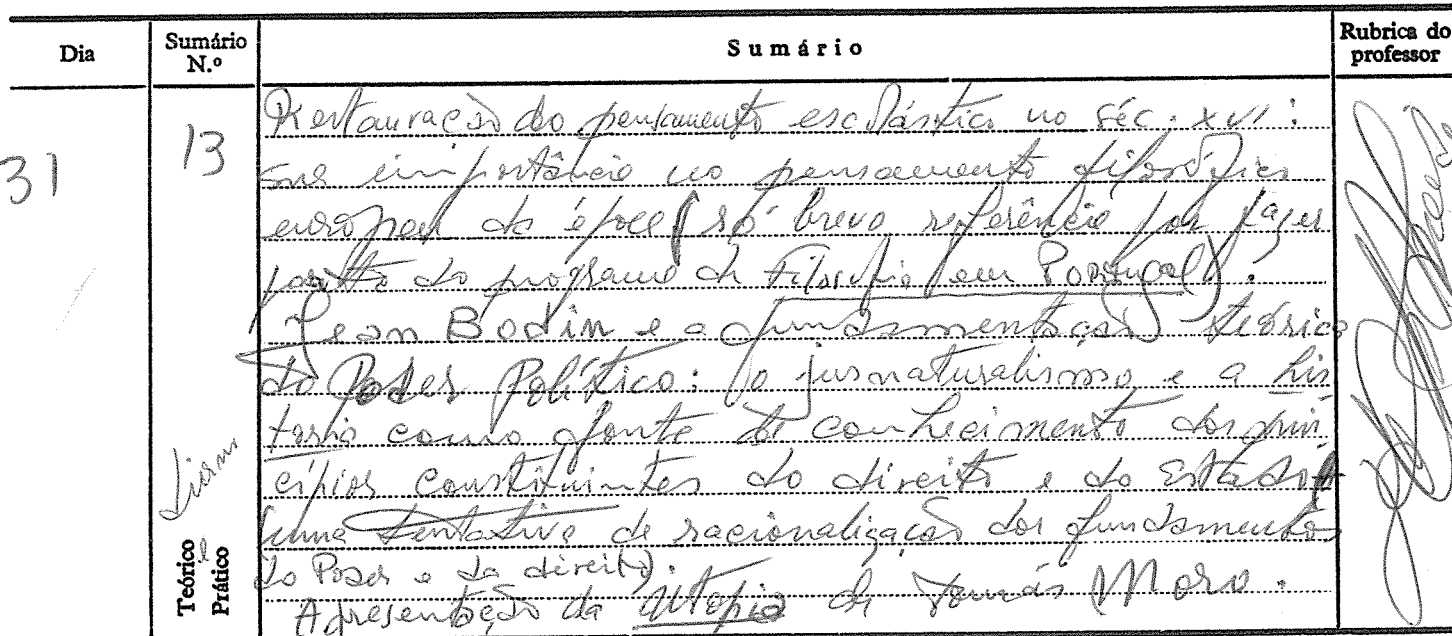 Dia
Sumário N.º
Sumário
Rubrica do professor
31
13
Restauração do pensamento escolástico no séc. XVI:
sua importância no pensamento filosófico
europeu da época (só breve referência por fazer
parte do programa de Filosofia em Portugal).
Jean Bodin e a fundamentação teórica
do Poder Político: o jusnaturalismo e a his
tória como fonte de conhecimento dos prin
cípios constituintes do direito e do Estado
(uma tentativa de racionalização dos fundamentos
do Poder e do direito).
Apresentação da Utopia de Tomás Moro.
Teórico e Prático